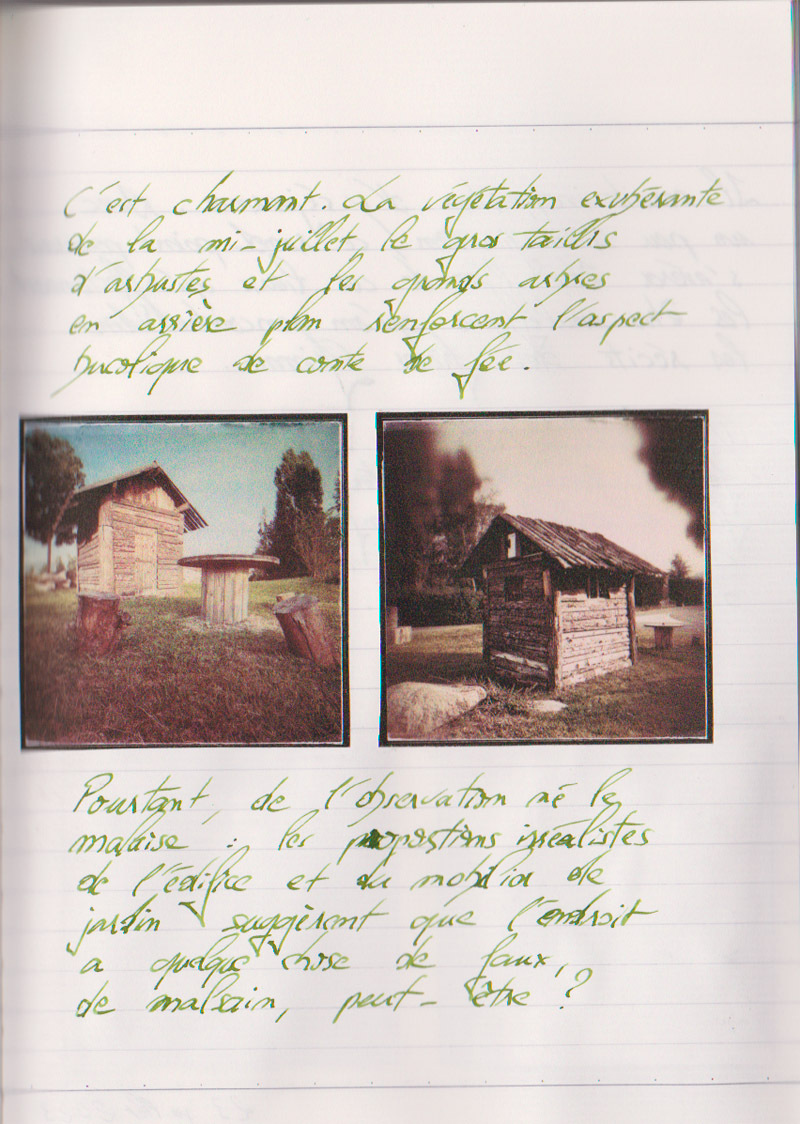 C'est charmant. La végétation exubérante
de la mi-juillet, le gros taillis
d'arbustes et les grands arbres
en arrière plan renforcent l'aspect
bucolique de conte de fée.
Pourtant, de l'observation né le
malaise : les proportions irréalistes
de l'édifice et du mobilier de
jardin suggèrent que l'endroit
a quelque chose de faux,
de malsain, peut-être ?